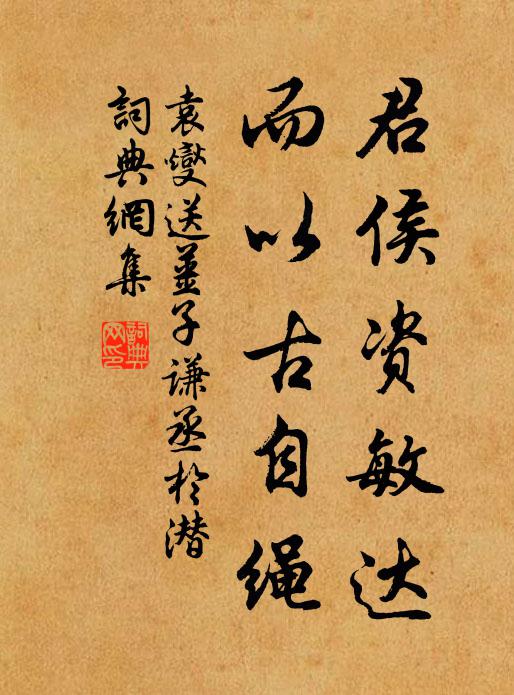 君侯资敏达
而以古自绳
袁燮送姜子谦丞於潜
詞典網集
詞典网印